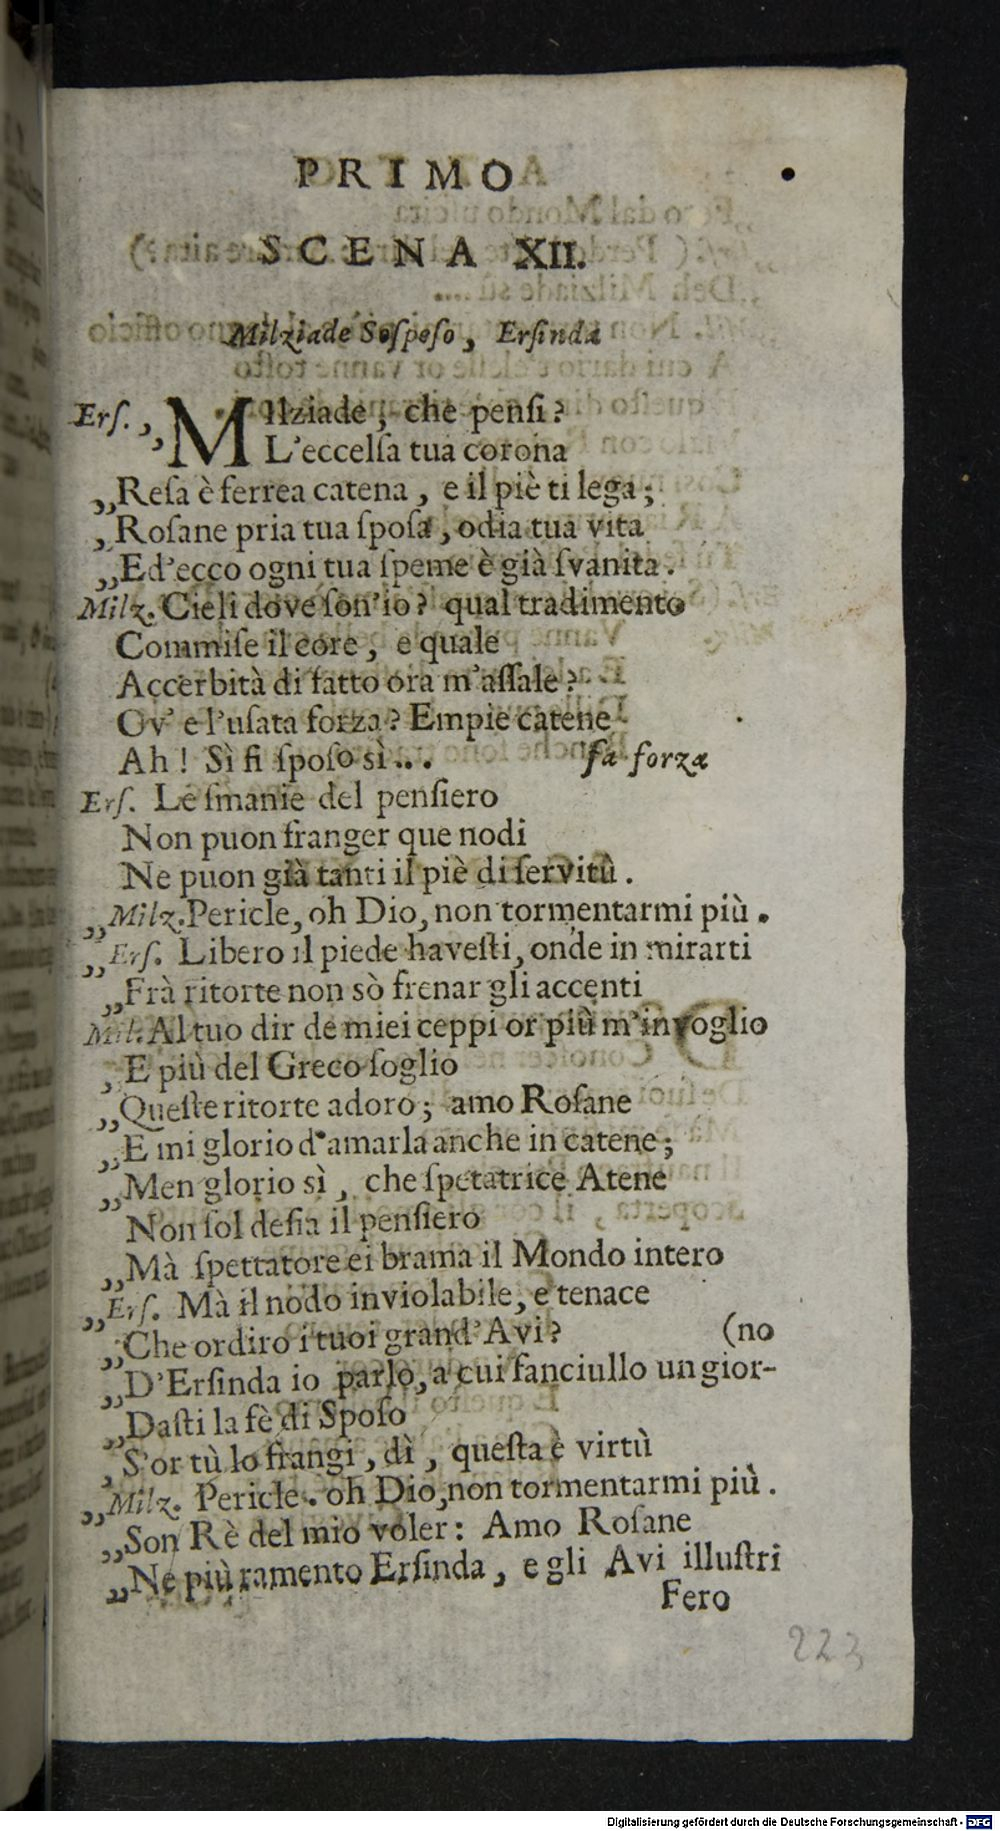 PRIMO
SCENA XII.
Milziade Soſpeſo, Erſinda
Erſ. ,, MIlziade, che penſi?
L'eccelſa tua corona
,,Reſa è ferrea catena, e il piè ti lega;
,,Roſane pria tua ſpoſa, odia tua vita
,,Ed'ecco ogni tua ſpeme è già ſvanita.
Milz. Cieli dove ſon'io? qual tradimento
Commiſe il core, e quale
Accerbità di fatto ora m'aſſale?
Ov' e l'uſata forza? Empie catene
Ah! Sì fi ſpoſo sì... fa forza
Erſ. Le ſmanie del penſiero
Non puon franger que nodi
Ne puon già tanti il piè di ſervitù.
,,Milz.Pericle, oh Dio, non tormentarmi più.
,,Erſ. Libero il piede haveſti, onde in mirarti
,,Frà ritorte non sò frenar gli accenti
Mil. Al tuo dir de miei ceppi or più m'invoglio
, E più del Greco ſoglio
,,Queſte ritorte adoro; amo Roſane
,,E mi glorio d'amarla anche in catene;
,,Men glorio sì, che ſpetatrice Atene
Non ſol deſia il penſiero
,,Mà ſpettatore ei brama il Mondo intero
,,Erſ. Mà il nodo inviolabile, e tenace
,,Che ordiro i tuoi grand'Avi? (no
,,D'Erſinda io parlo, a cui fanciullo un gior-
,,Daſti la fè di Spoſo
,S'or tù lo frangi, dì, queſta è virtù
,,Milz. Pericle. oh Dio,non tormentarmi più.
,,Son Rè del mio voler: Amo Roſane
,,Ne più ramento Erſinda, e gli Avi illuſtri
Fero
223
Digitalisierung gefördert durch die Deutsche Forschungsgemeinschaft - DFG